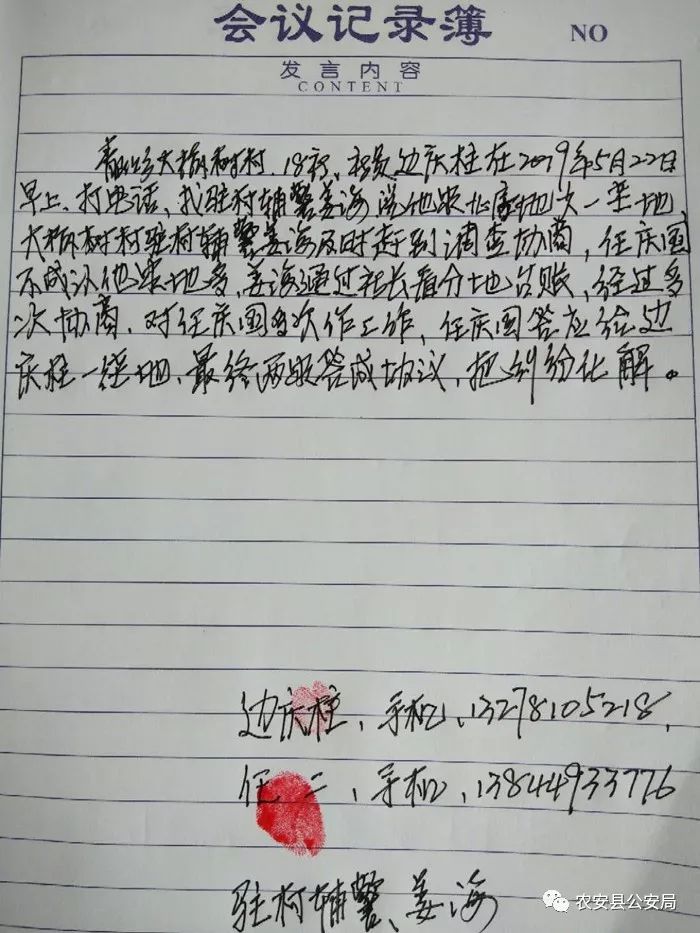 会议记录簿 NO
发言内容
CONTENT
青山乡大榆树村.18社、社员边庆柱在2019年5月22日
早上、打电话、找驻村辅警姜海说他跟北屋地欠一垄地
大榆树村驻村辅警姜海及时赶到调查协商，任庆国
不成认他家地多，姜海通过社长看分地台账、经过多
次协商．对任庆国多次作工作，任庆国答应给边
庆柱一垄地、最终两家答成协议，把纠纷化解。
边庆柱、手机、13278105218.
任二、手机、13844933776
驻村辅警、姜海
农安县公安局